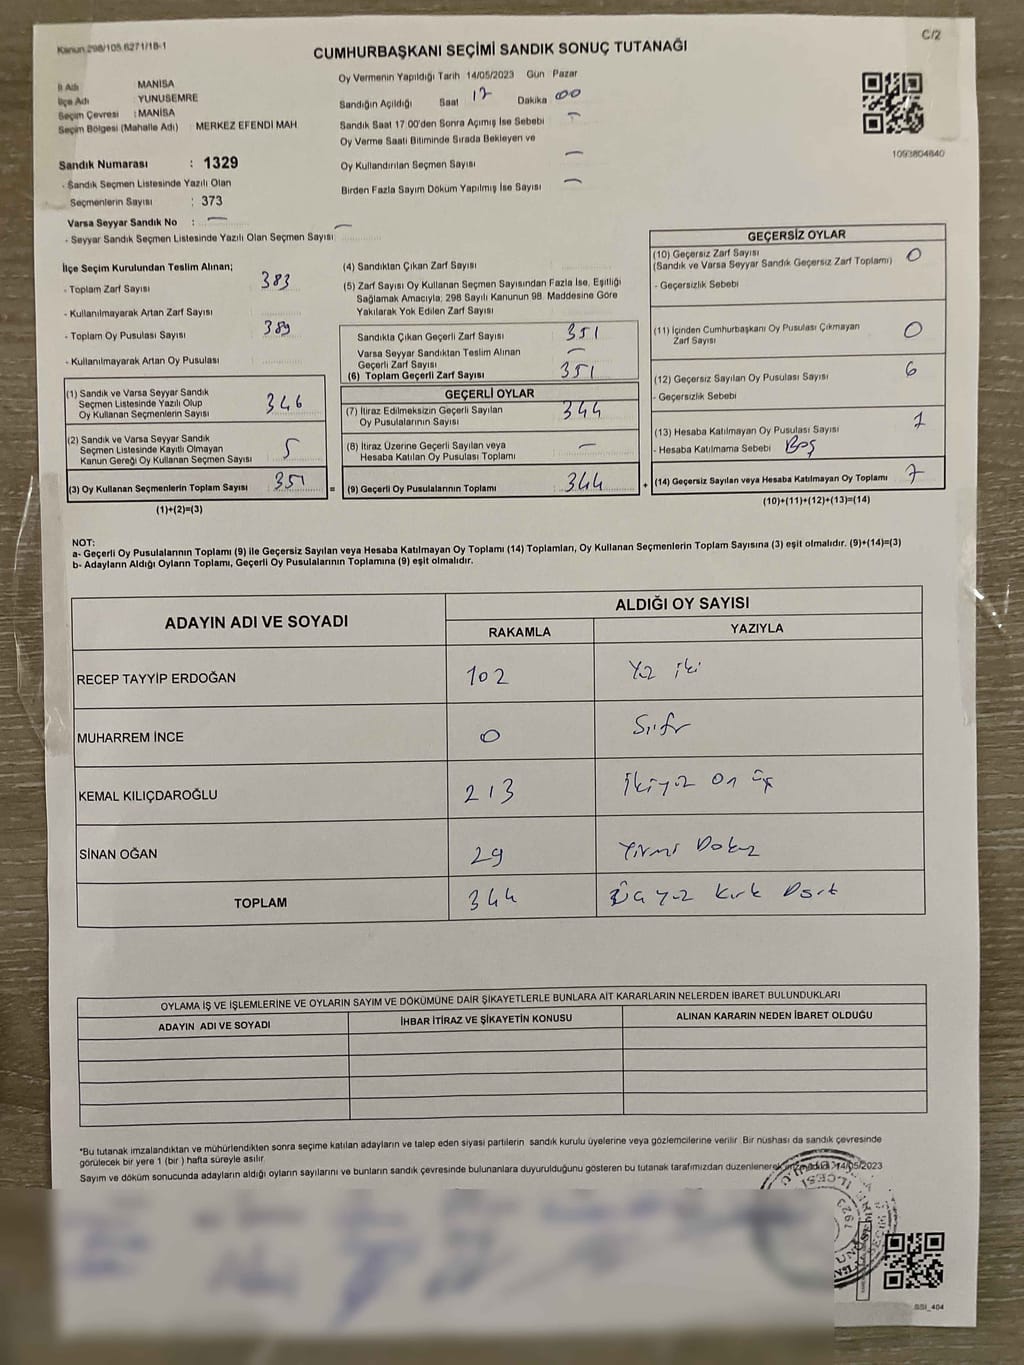 Kanun 298/105.6271/18-1
C/2
CUMHURBAŞKANI SEÇİMİ SANDIK SONUÇ TUTANAĞI
İl Adı MANİSA
İlçe Adı YUNUSEMRE
Seçim Çevresi : MANİSA
Seçim Bölgesi (Mahalle Adı) MERKEZ EFENDİ MAH
Sandık Numarası : 1329
- Sandık Seçmen Listesinde Yazılı Olan
Seçmenlerin Sayısı : 373
Varsa Seyyar Sandık No : —
- Seyyar Sandık Seçmen Listesinde Yazılı Olan Seçmen Sayısı: —
Oy Vermenin Yapıldığı Tarih 14/05/2023 Gün Pazar
Sandığın Açıldığı Saat 17 Dakika 00
Sandık Saat 17:00'den Sonra Açımış İse Sebebi —
Oy Verme Saati Bitiminde Sırada Bekleyen ve
Oy Kullandırılan Seçmen Sayısı —
Birden Fazla Sayım Döküm Yapılmış İse Sayısı —
1093804840
İlçe Seçim Kurulundan Teslim Alınan;
- Toplam Zarf Sayısı 383
- Kullanılmayarak Artan Zarf Sayısı
- Toplam Oy Pusulası Sayısı 389
- Kullanılmayarak Artan Oy Pusulası
(1) Sandık ve Varsa Seyyar Sandık
Seçmen Listesinde Yazılı Olup
Oy Kullanan Seçmenlerin Sayısı 346
(2) Sandık ve Varsa Seyyar Sandık
Seçmen Listesinde Kayıtlı Olmayan
Kanun Gereği Oy Kullanan Seçmen Sayısı 5
(3) Oy Kullanan Seçmenlerin Toplam Sayısı 351 =
(1)+(2)=(3)
(4) Sandıktan Çıkan Zarf Sayısı
(5) Zarf Sayısı Oy Kullanan Seçmen Sayısından Fazla İse, Eşitliği
Sağlamak Amacıyla; 298 Sayılı Kanunun 98. Maddesine Göre
Yakılarak Yok Edilen Zarf Sayısı
Sandıkta Çıkan Geçerli Zarf Sayısı 351
Varsa Seyyar Sandıktan Teslim Alınan
Geçerli Zarf Sayısı —
(6) Toplam Geçerli Zarf Sayısı 351
GEÇERLİ OYLAR
(7) İtiraz Edilmeksizin Geçerli Sayılan
Oy Pusulalarının Sayısı 344
(8) İtiraz Üzerine Geçerli Sayılan veya
Hesaba Katılan Oy Pusulası Toplamı —
(9) Geçerli Oy Pusulalarının Toplamı 344 +
GEÇERSİZ OYLAR
(10) Geçersiz Zarf Sayısı 0
(Sandık ve Varsa Seyyar Sandık Geçersiz Zarf Toplamı)
- Geçersizlik Sebebi
(11) İçinden Cumhurbaşkanı Oy Pusulası Çıkmayan
Zarf Sayısı 0
(12) Geçersiz Sayılan Oy Pusulası Sayısı 6
- Geçersizlik Sebebi
(13) Hesaba Katılmayan Oy Pusulası Sayısı 1
- Hesaba Katılmama Sebebi Boş
(14) Geçersiz Sayılan veya Hesaba Katılmayan Oy Toplamı 7
(10)+(11)+(12)+(13)=(14)
NOT:
a- Geçerli Oy Pusulalarının Toplamı (9) ile Geçersiz Sayılan veya Hesaba Katılmayan Oy Toplamı (14) Toplamları, Oy Kullanan Seçmenlerin Toplam Sayısına (3) eşit olmalıdır. (9)+(14)=(3)
b- Adayların Aldığı Oyların Toplamı, Geçerli Oy Pusulalarının Toplamına (9) eşit olmalıdır.
ADAYIN ADI VE SOYADI ALDIĞI OY SAYISI
RAKAMLA YAZIYLA
RECEP TAYYİP ERDOĞAN 102 Yüz iki
MUHARREM İNCE 0 Sıfır
KEMAL KILIÇDAROĞLU 213 İkiyüz On üç
SİNAN OĞAN 29 Yirmi Dokuz
TOPLAM 344 Üçyüz Kırk Dört
OYLAMA İŞ VE İŞLEMLERİNE VE OYLARIN SAYIM VE DÖKÜMÜNE DAİR ŞİKAYETLERLE BUNLARA AİT KARARLARIN NELERDEN İBARET BULUNDUKLARI
ADAYIN ADI VE SOYADI İHBAR İTİRAZ VE ŞİKAYETİN KONUSU ALINAN KARARIN NEDEN İBARET OLDUĞU
*Bu tutanak imzalandıktan ve mühürlendikten sonra seçime katılan adayların ve talep eden siyasi partilerin sandık kurulu üyelerine veya gözlemcilerine verilir. Bir nüshası da sandık çevresinde
görülecek bir yere 1 (bir) hafta süreyle asılır.
Sayım ve döküm sonucunda adayların aldığı oyların sayılarını ve bunların sandık çevresinde bulunanlara duyurulduğunu gösteren bu tutanak tarafımızdan düzenlenerek imzalandı. 14/05/2023
SSI_404